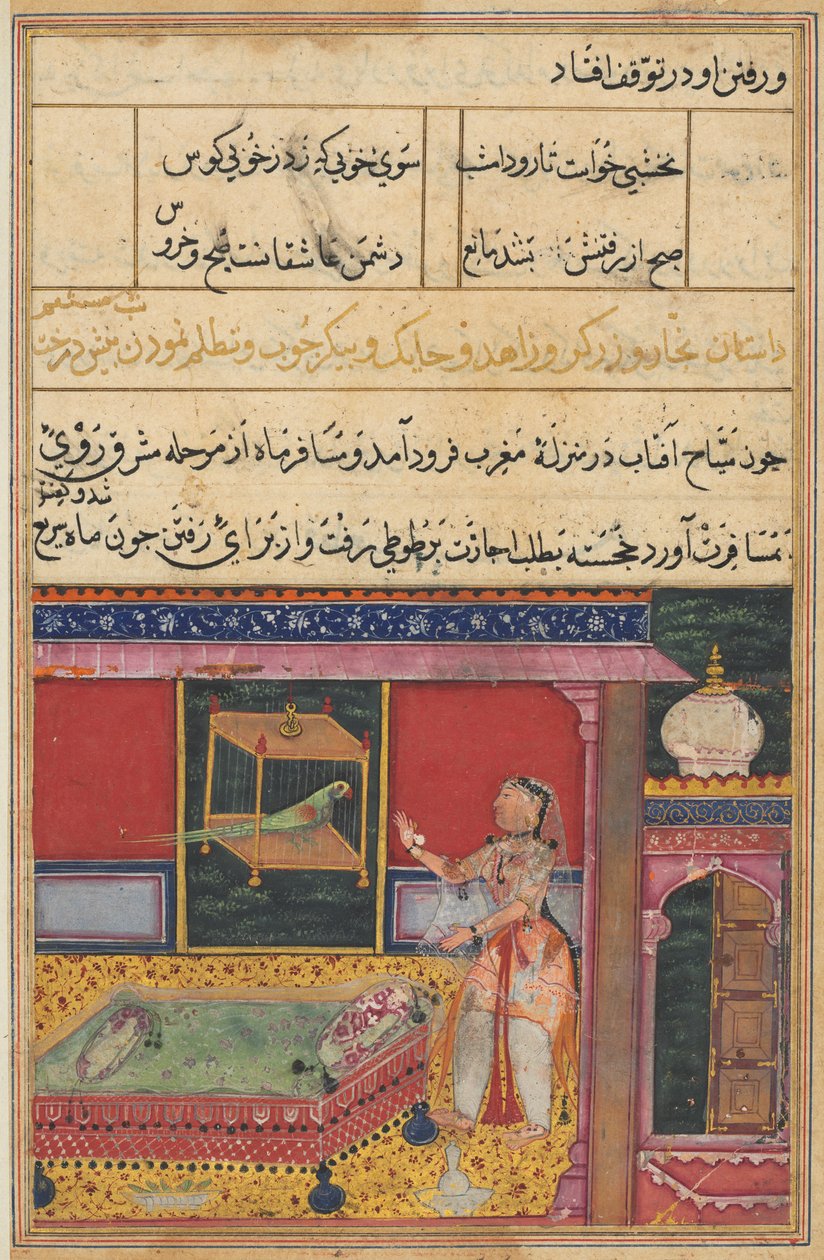 و رفتن او در توقف افتاد
نخشبی خواست تا رود امشب سوی خوبی که زد ز خوبی کوس
صبح از رفتنش بشد مانع دشمن عاشقانست صبح و خروس
داستان نجار و زرگر و زاهد و حایک و پیکر چوب و تظلم نمودن پیش درخت
شب ششم
چون سیاح آفتاب در منزلهٔ مغرب فرود آمد و مسافر ماه از مرحله مشرق روی
بمسافرت آورد خجسته بطلب اجازت بر طوطی رفت و از برای رفتن چون ماه سریع
شد و گفت